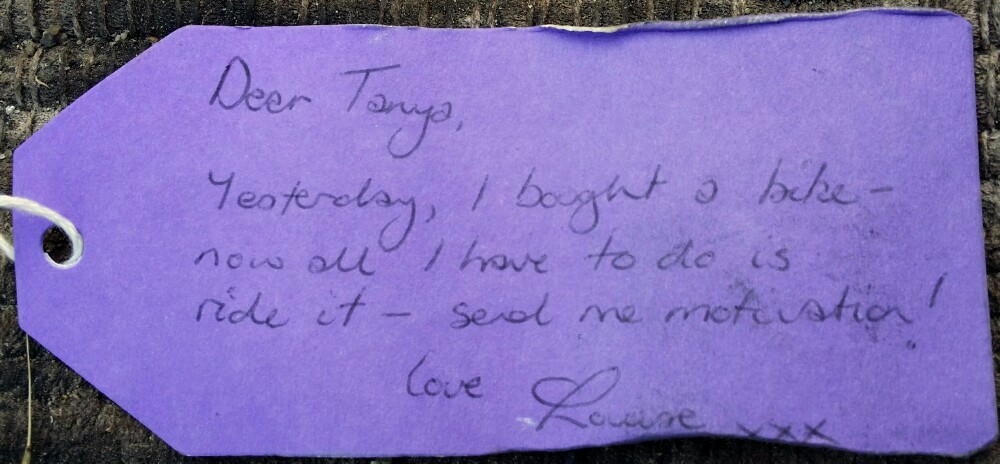 Dear Tanya,
Yesterday, I bought a bike -
now all I have to do is
ride it - send me motivation!
love Louise xxx